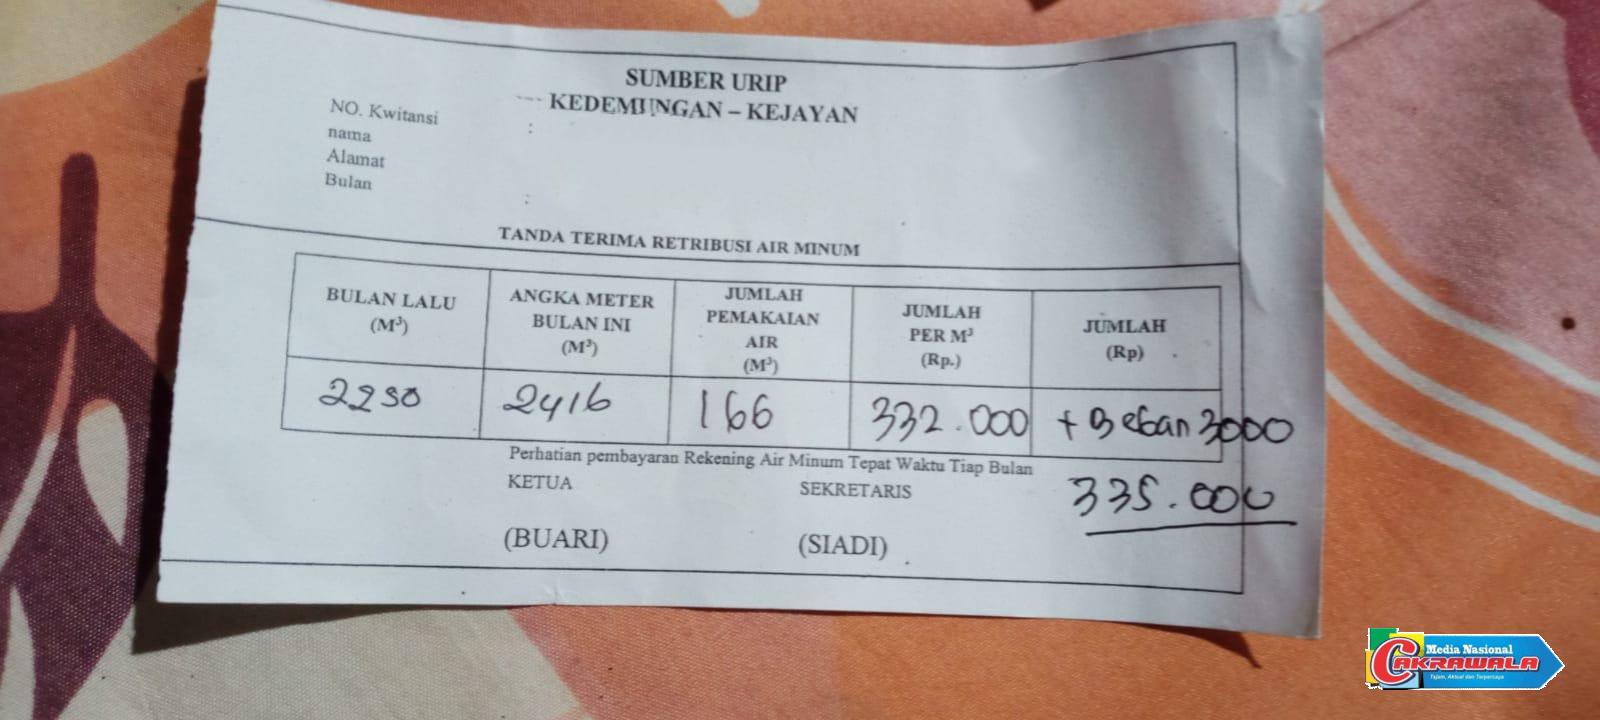 SUMBER URIP
KEDEMUNGAN – KEJAYAN
NO. Kwitansi :
nama
Alamat
Bulan :
TANDA TERIMA RETRIBUSI AIR MINUM
BULAN LALU (M³)
ANGKA METER BULAN INI (M³)
JUMLAH PEMAKAIAN AIR (M³)
JUMLAH PER M³ (Rp.)
JUMLAH (Rp)
2250 2416 166 332.000 + Beban 3000
Perhatian pembayaran Rekening Air Minum Tepat Waktu Tiap Bulan
335.000
KETUA SEKRETARIS
(BUARI) (SIADI)
Media Nasional
CAKRAWALA
Tajam, Aktual dan Terpercaya